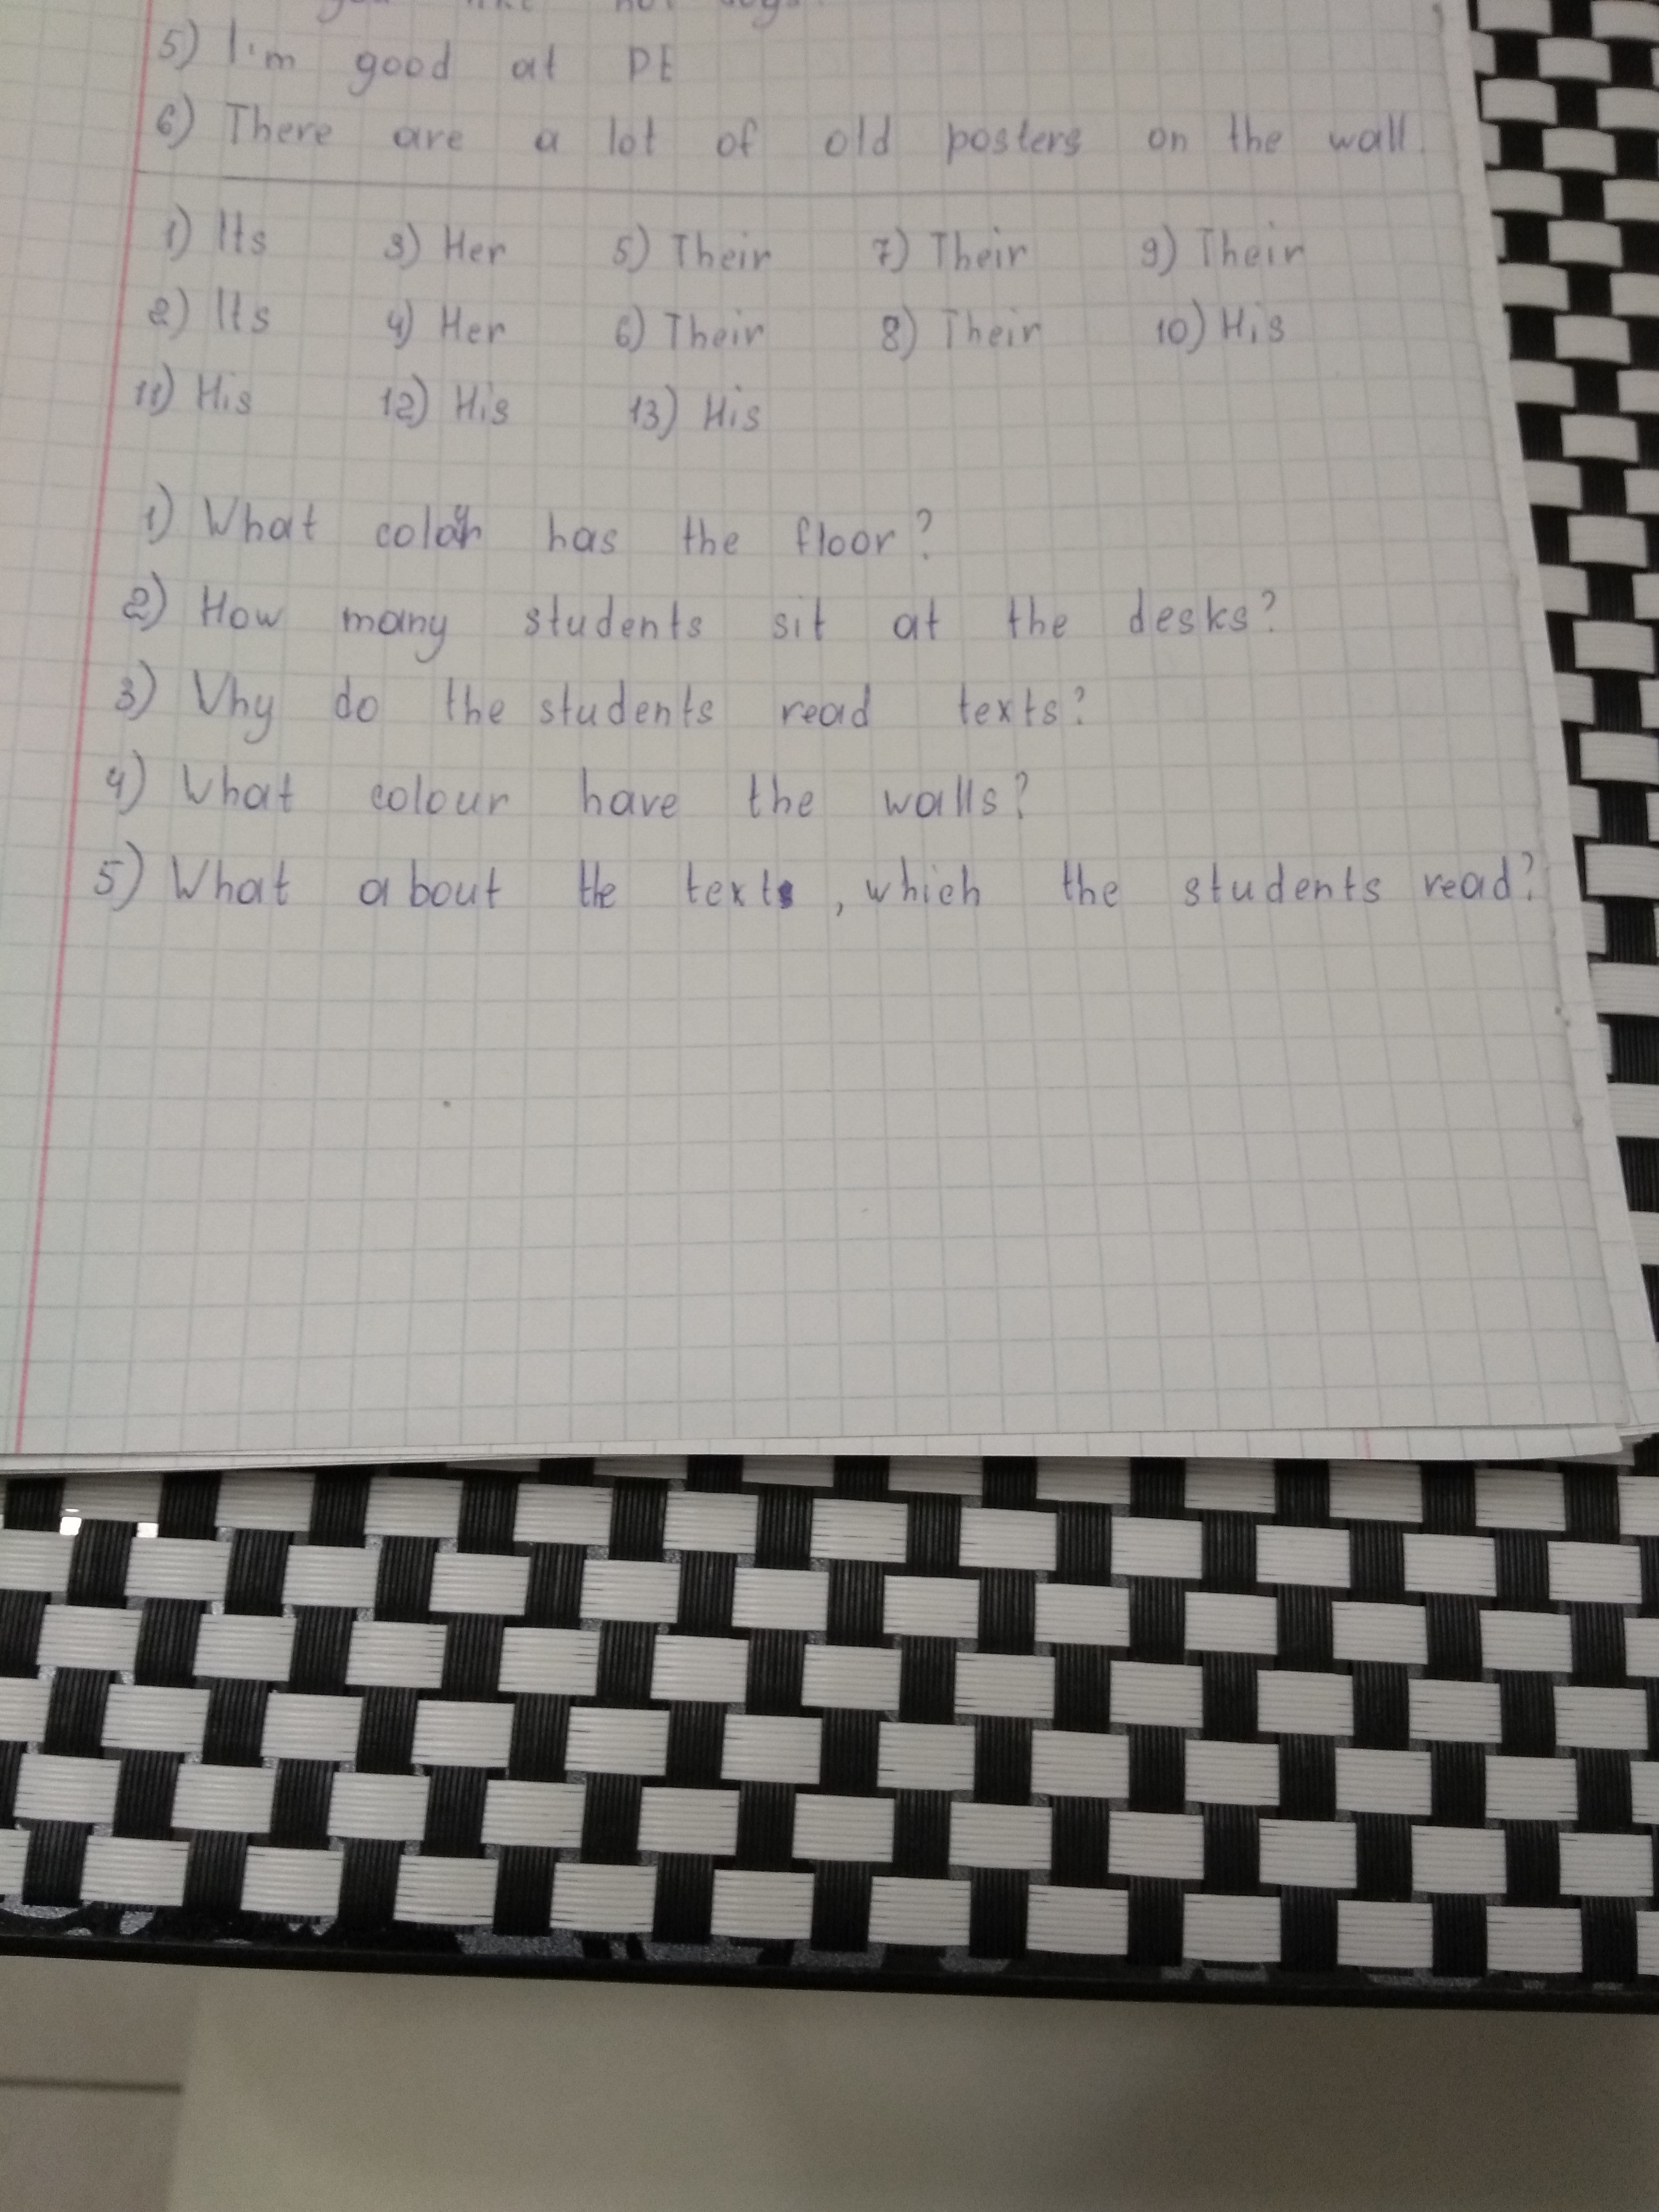 5) I'm good at PE
6) There are a lot of old posters on the wall.
1) Its 3) Her 5) Their 7) Their 9) Their
2) Its 4) Her 6) Their 8) Their 10) His
11) His 12) His 13) His
1) What has the floor?
2) How many students sit at the desks?
3) Why do the students read texts?
4) What colour have the walls?
5) What about the texts, which the students read?